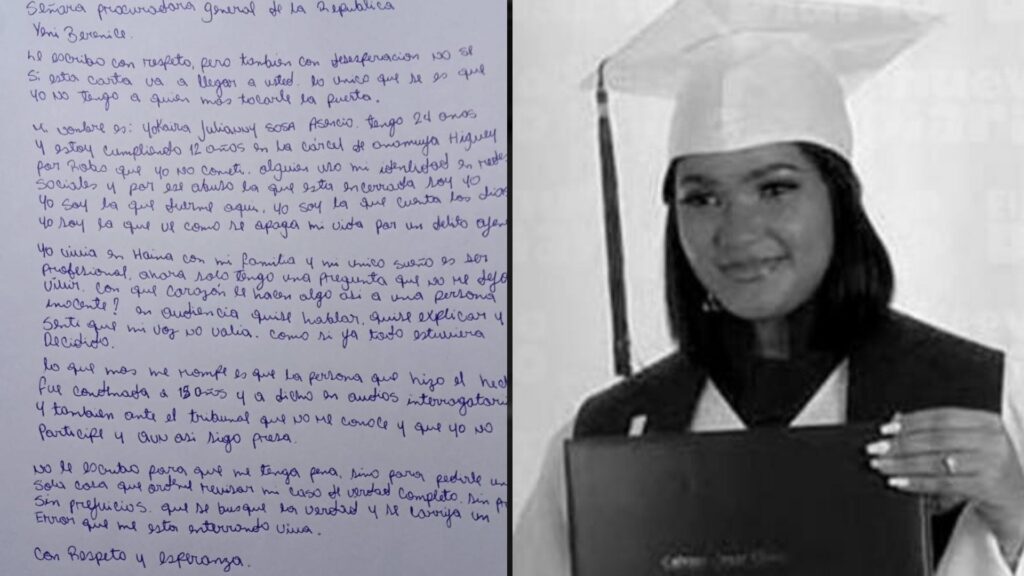 Señara procuradora general de la Republica
Yeni Berenice.
Le escribo con respeto, pero tambien con desesperacion no se
Si esta carta va a llegar a usted. lo unico que se es que
yo no tengo a quien mas tocarle la puerta.
Mi nombre es: Yokaira Julianny SOSA Asencio. tengo 24 anos
y estoy cumpliendo 12 años en la cárcel de anamuya Higuey
por Robo que yo no cometi. alguien uso mi identidad en redes
sociales y por ese abuso la que esta encerrada soy yo
yo soy la que duerme aqui, yo soy la que cuenta los dias
yo soy la que ve como se apaga mi vida por un delito ajen
yo vivia en Haina con mi familia y mi unico sueño es ser
Profesional, ahora solo tengo una pregunta que no me deja
vivir. con que corazón le hacen algo asi a una persona
inocente? en audiencia quise hablar, quise explicar y
Senti que mi voz no valia. como si ya todo estuviera
Decidido.
lo que mas me rompe es que la persona que hizo el hec
fue condenada a 15 años y a dicho en audios interrogatori
y tambien ante el tribunal que no me conoce y que yo no
Participe y aun asi sigo presa.
no le escribo para que me tenga pena, sino para pedirle un
sola cosa que ordene revisar mi caso de verdad completo, sin
sin prejuicios. que se busque la verdad y se corrija un
Error que me esta enterrando viva.
con Respeto y esperanza.